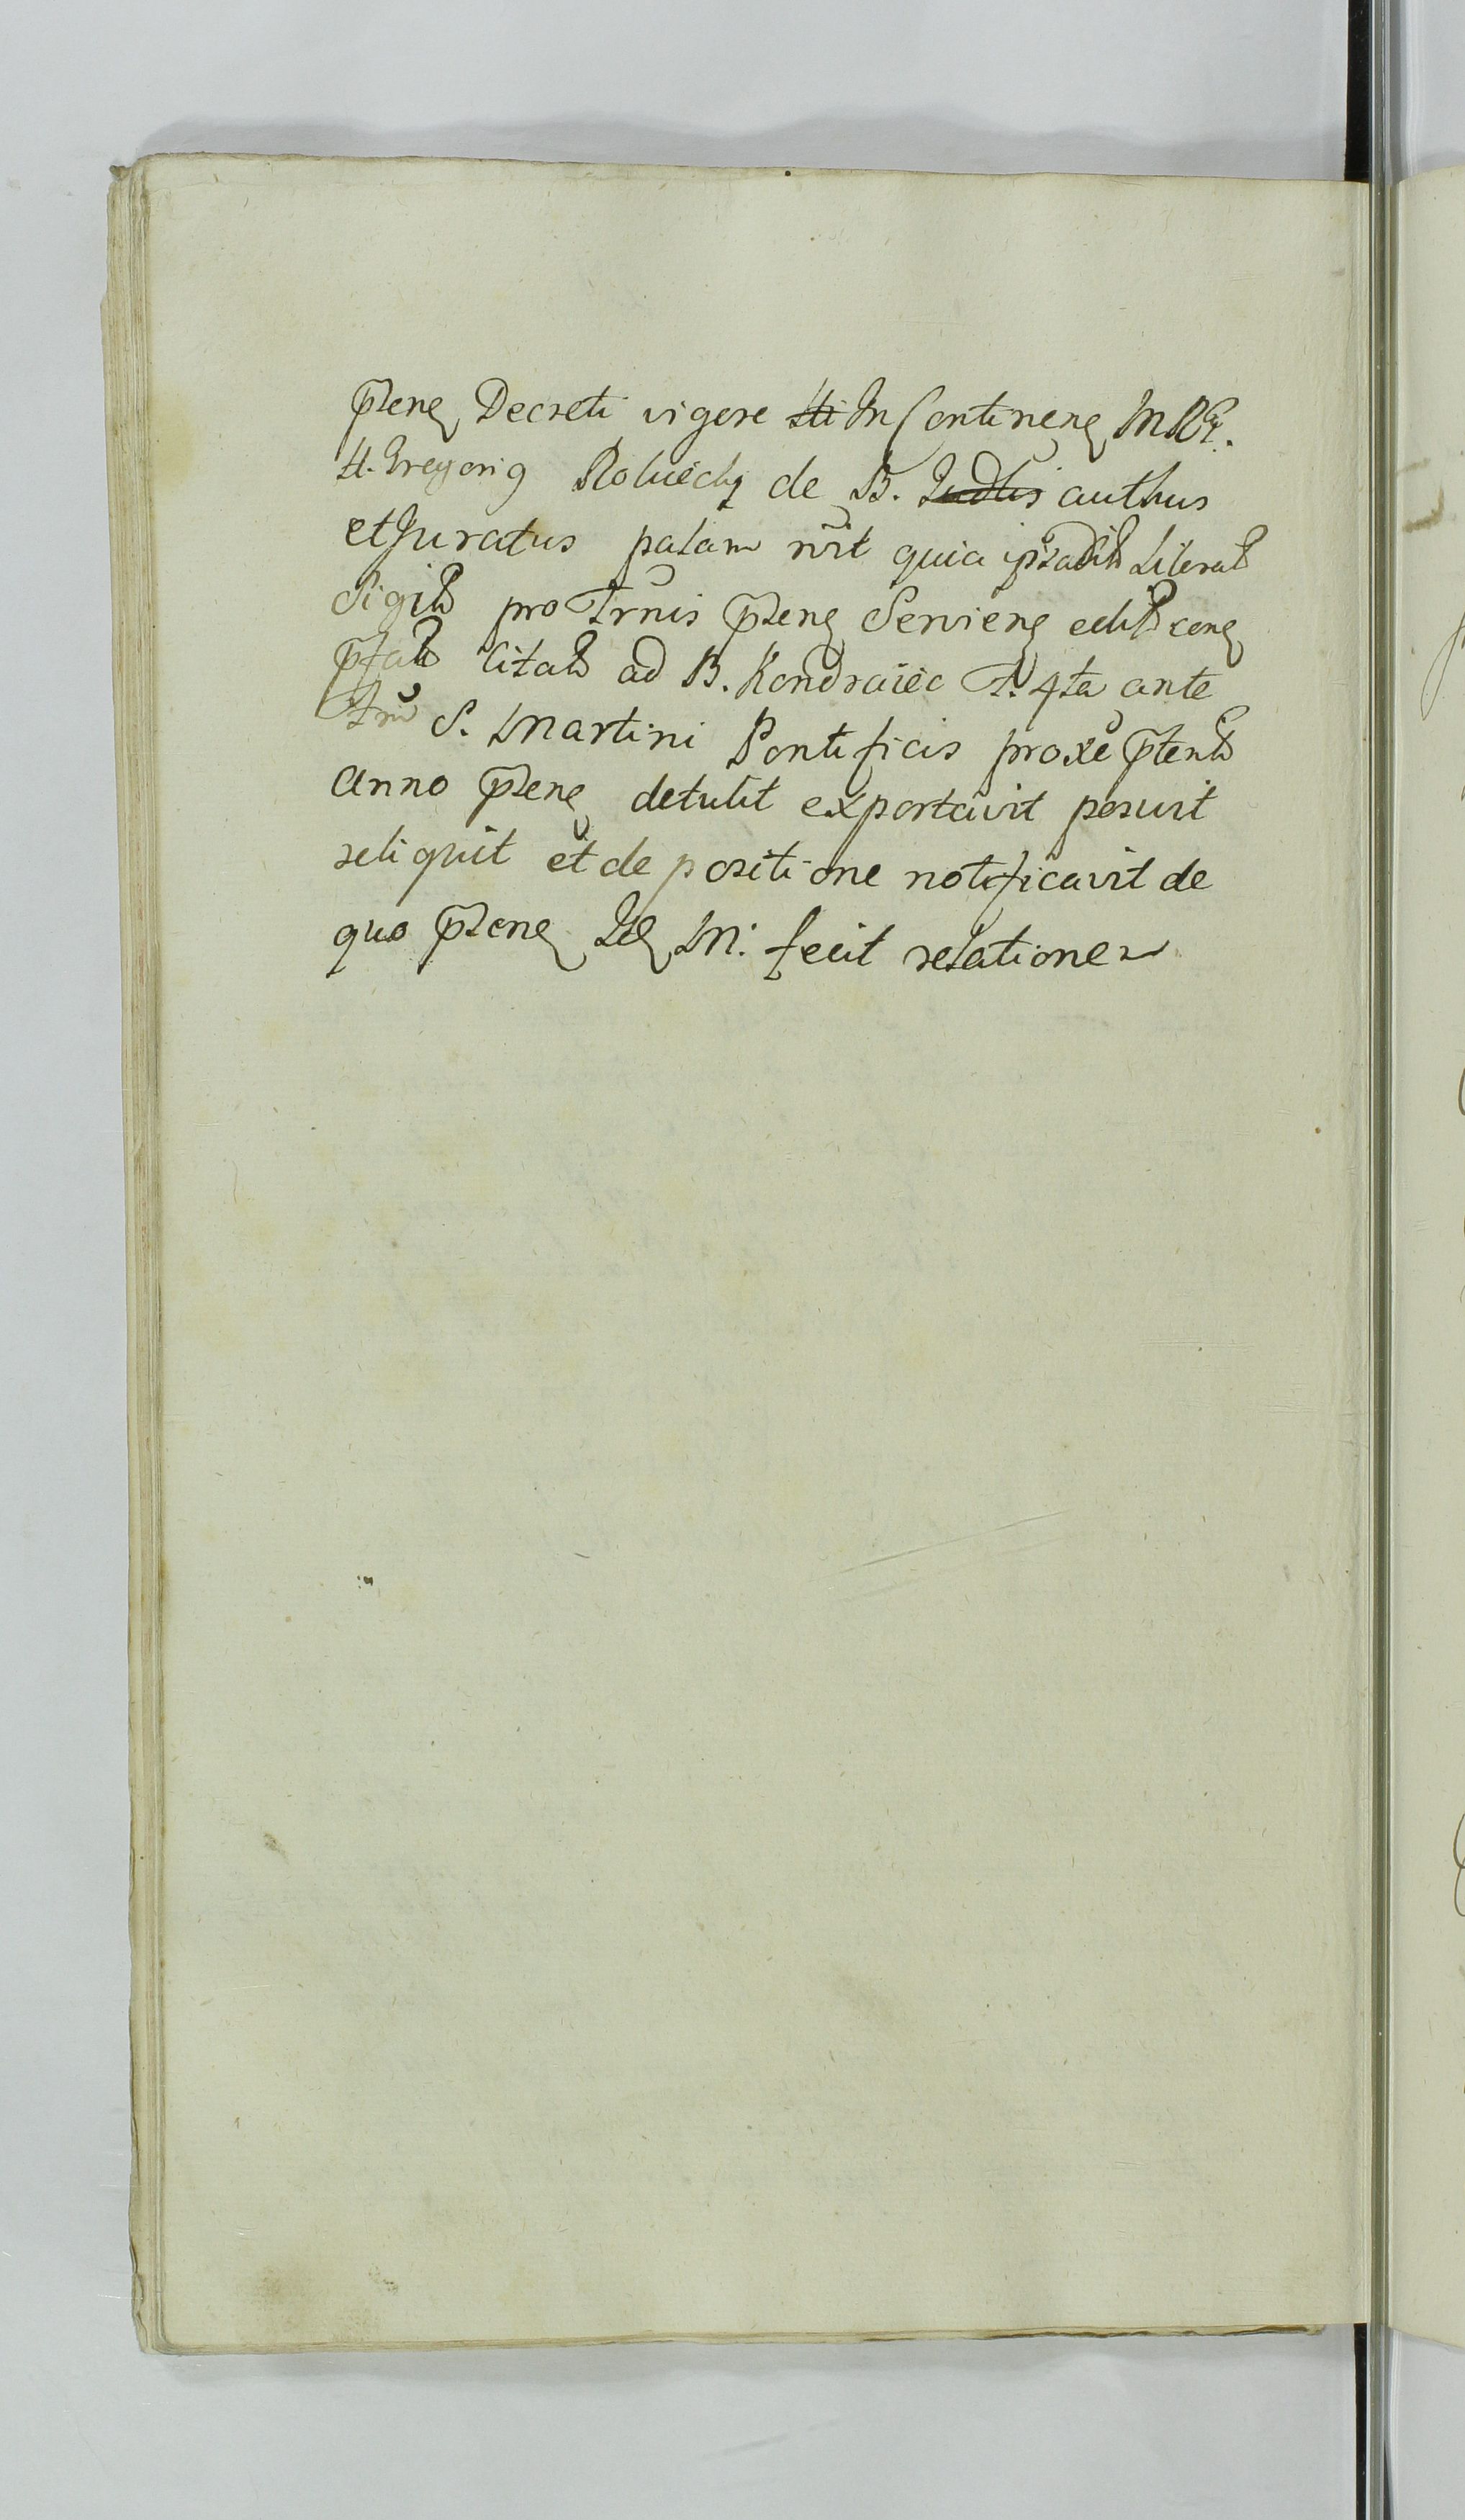 p̄senꝭ Decreti vigore Hti In Continenꝭ MRG.
H. Gregoriꝯ Roluieckꝭ de B. Judlis authus
et Juratus palam rūit quia ip̄e ad Literas
Sigill pro Trnis p̄senꝭ Servienꝭ edit conꝭ
p̄fat Citat ad B. Kondraiec F. 4ta ante
Fm̄ S. Martini Pontificis proxe p̄terit
Anno p̄senꝭ detulit exportavit posuit
reliquit et de positione notificavit de
quo p̄senꝭ Idꝭ M. fecit relationem